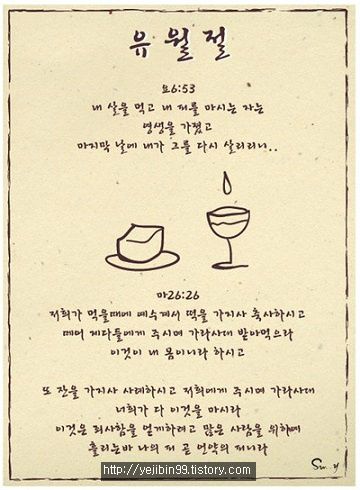 유월절
요6:53
내 살을 먹고 내 피를 마시는 자는
영생을 가졌고
마지막 날에 내가 그를 다시 살리리니..
마26:26
저희가 먹을때에 예수께서 떡을 가지사 축사하시고
떼어 제자들에게 주시며 가라사대 받아먹으라
이것이 내 몸이니라 하시고
또 잔을 가지사 사례하시고 저희에게 주시며 가라사대
너희가 다 이것을 마시라
이것은 죄사함을 얻게하려고 많은 사람을 위하여
흘리는바 나의 피 곧 언약의 피니라
http://yejibin99.tistory.com